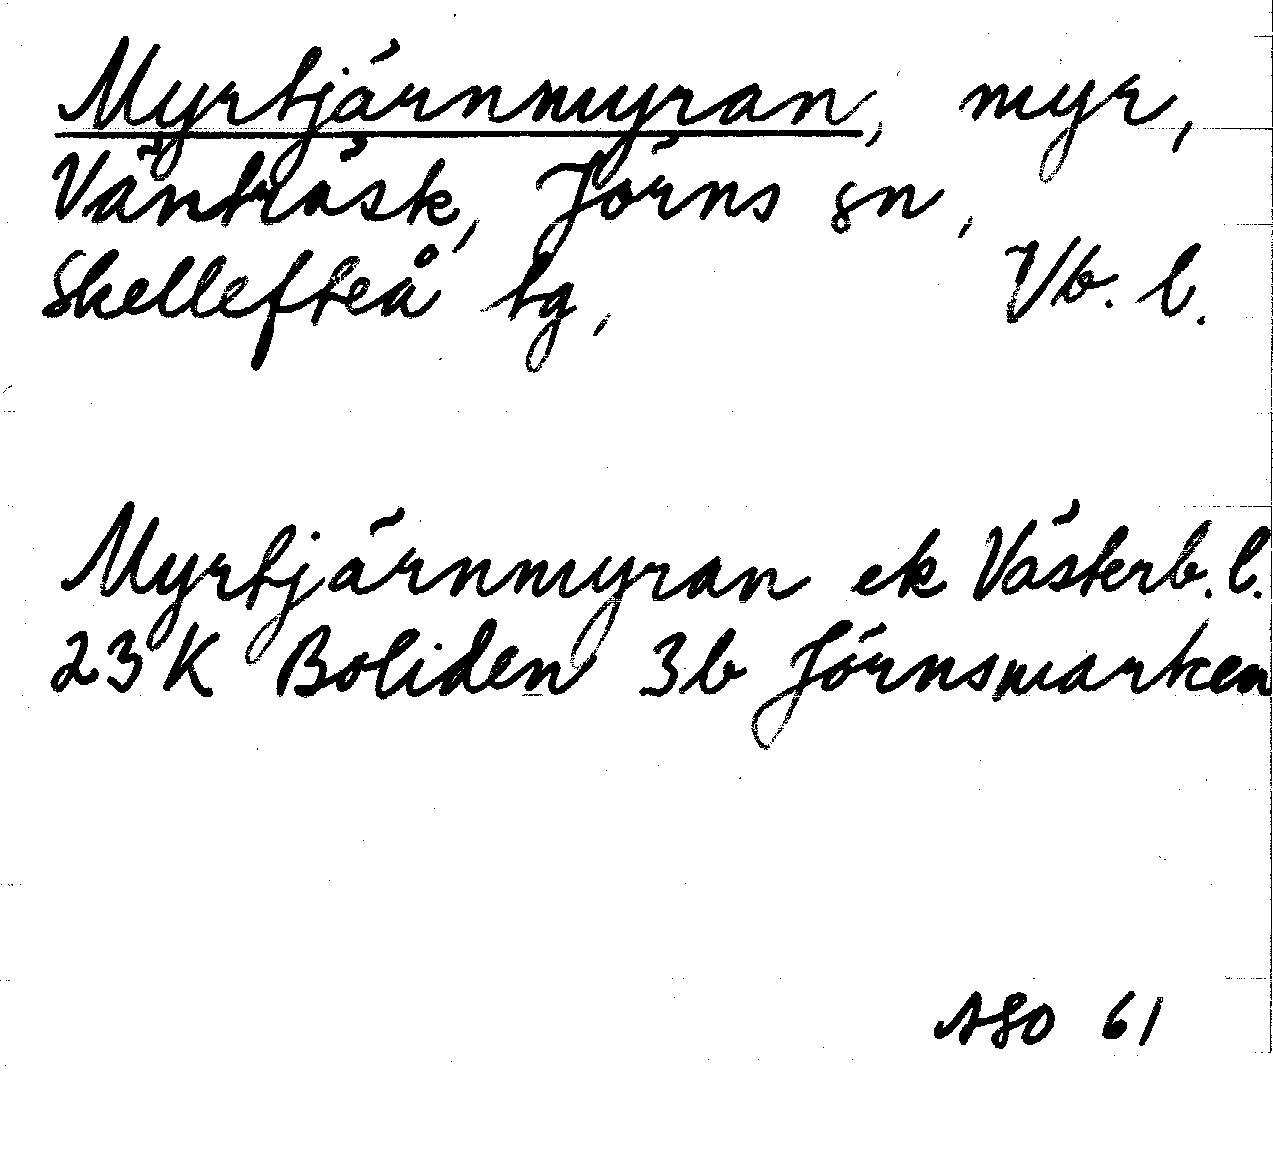 Myrtjärnmyran, myr,
Vänträsk, Jörns sn,
Skellefteå tg, Vb. l.
Myrtjärnmyran ek Västerb. l.
23K Boliden 3b Jörnsmarken
ASO 61